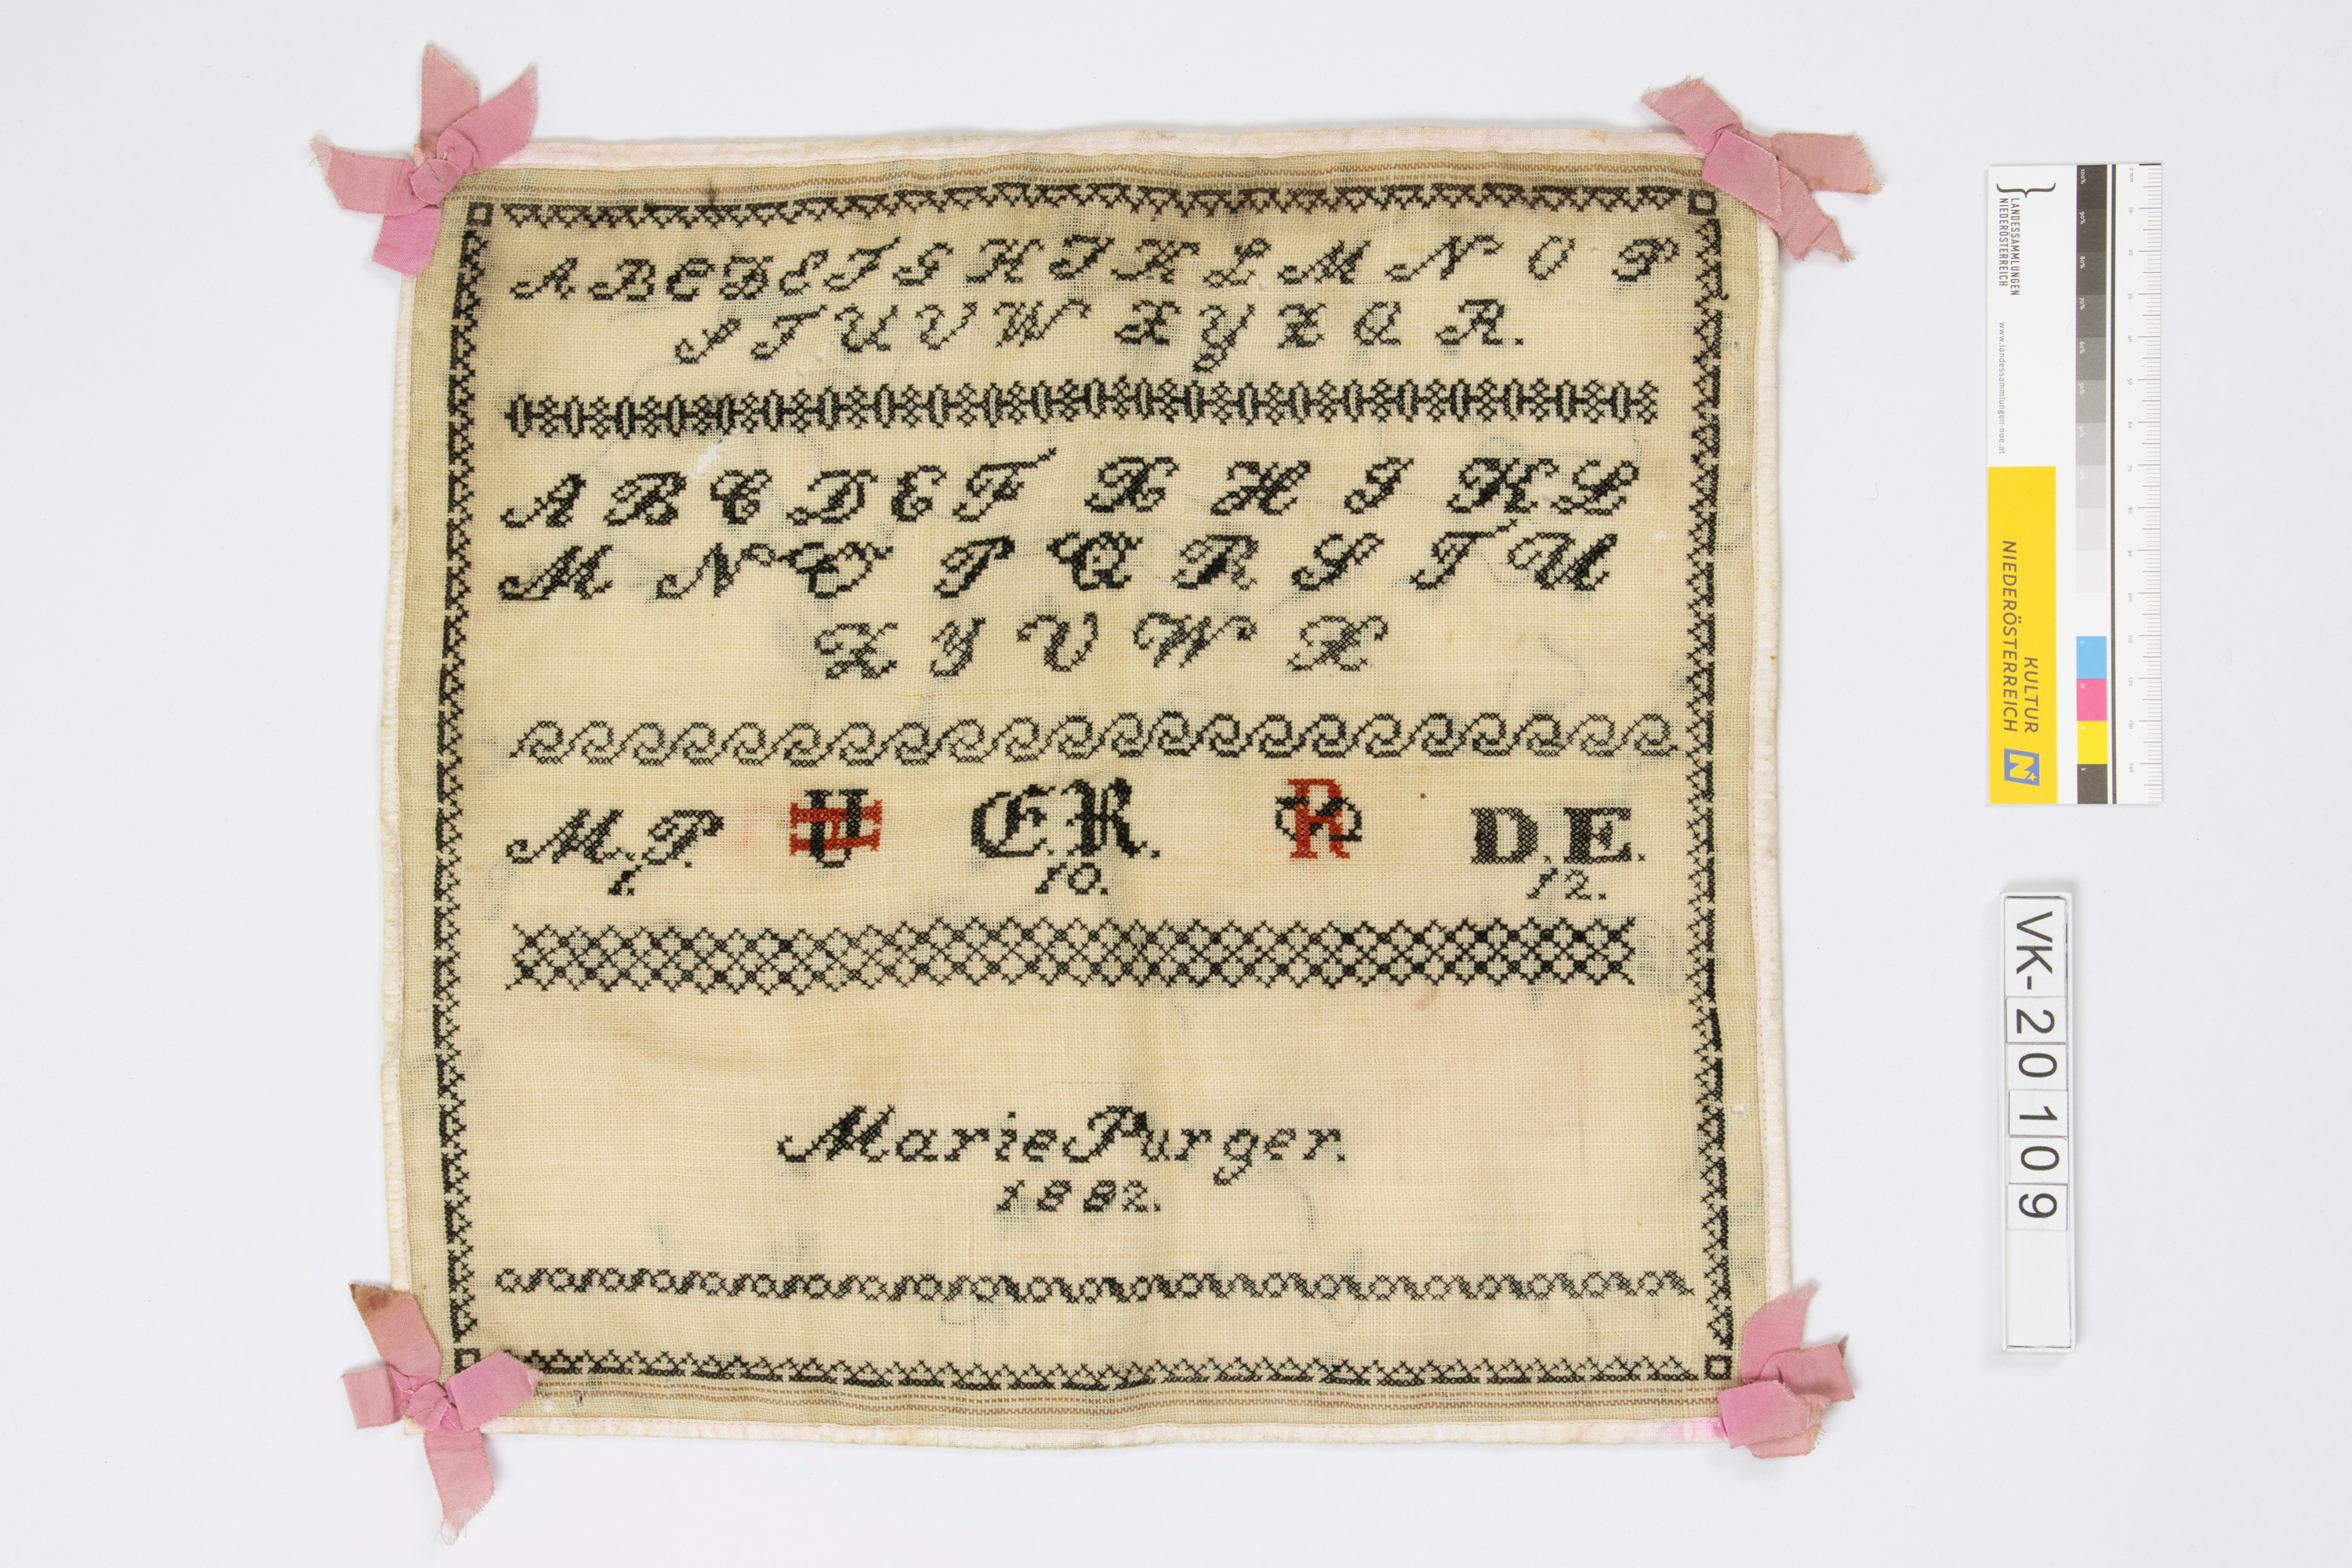 A B C D E F G H I K L M N O P
S T U V W X Y Z Q R.
A B C D E F G H I K L
M N O P Q R S T U
Z Y V W X
M. P. E. R. D. E.
1. 10. 12.
Marie Purger.
1882.
LANDESSAMMLUNGEN
NIEDERÖSTERREICH
www.landessammlungen-noe.at
KULTUR
NIEDERÖSTERREICH
N
VK-20109